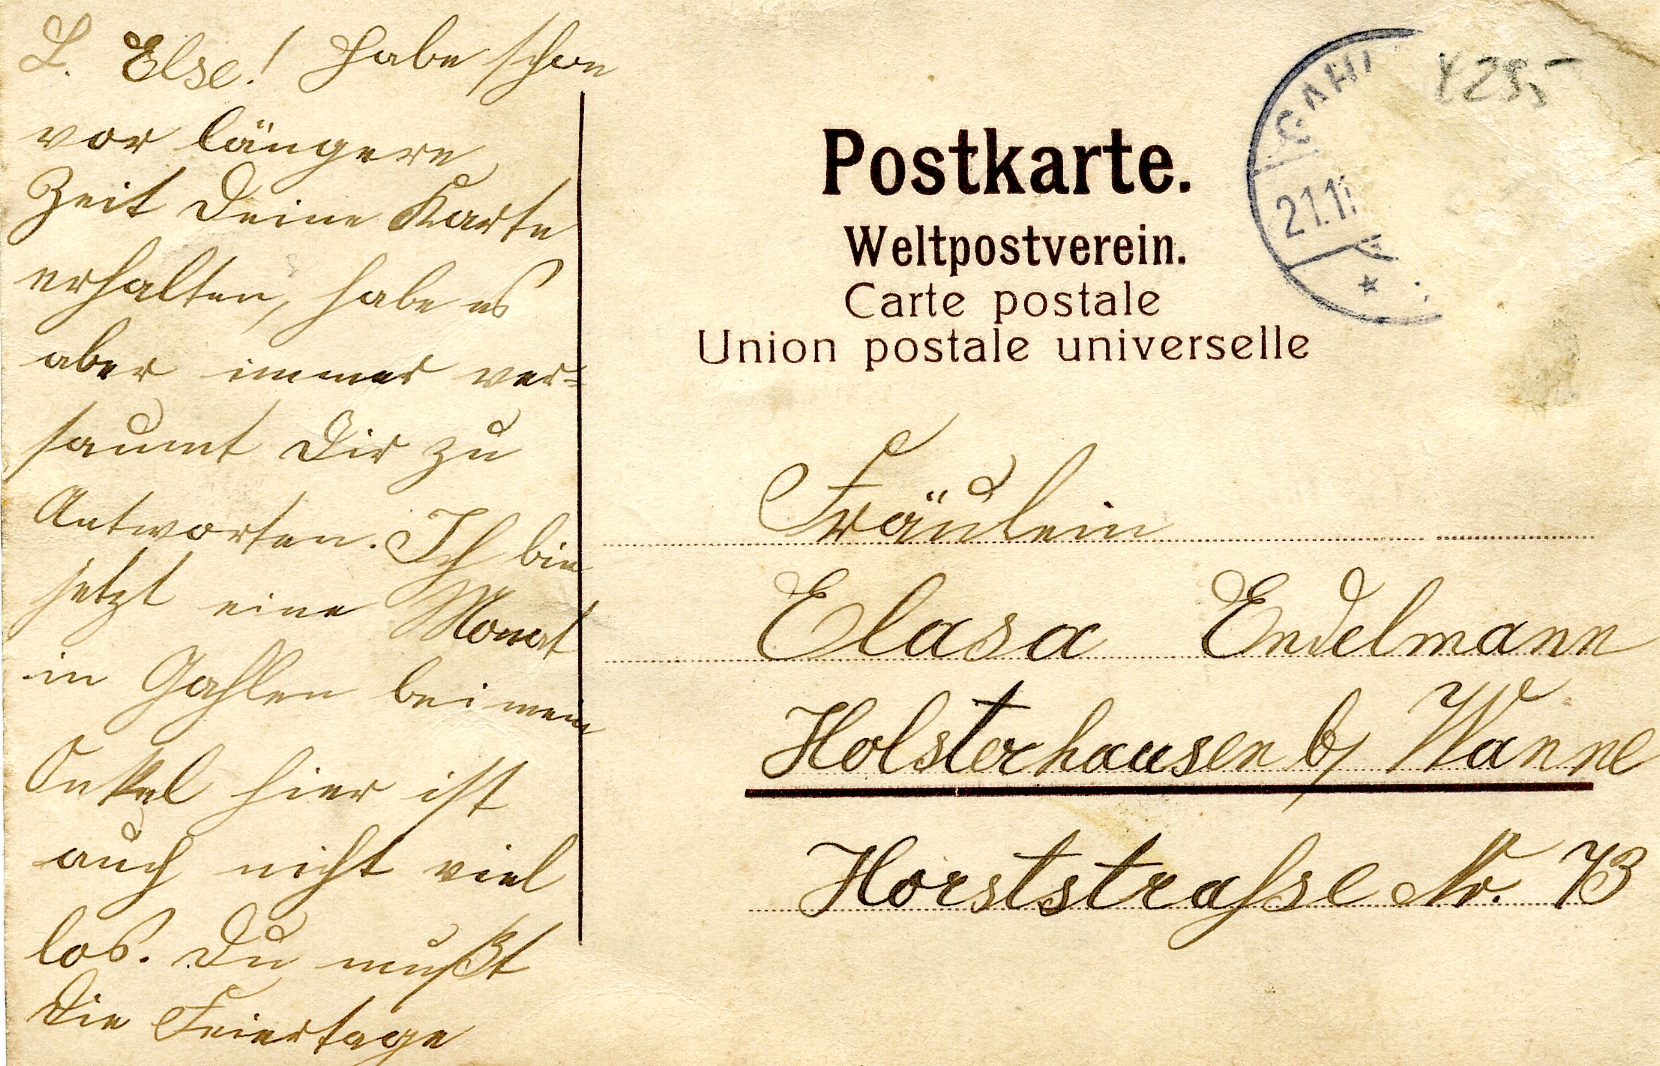 L. Else! Habe schon
vor längere
Zeit Deine Karte
erhalten, habe es
aber immer ver=
saumt Dir zu
Antworten. Ich bin
jetzt eine Monat
in Gahlen bei mein
Onkel hier ist
auch nicht viel
los. Du mußt
Die Feiertage
Postkarte.
Weltpostverein.
Carte postale
Union postale universelle
GAHL
21.11
Y 285
Fräulein
Elasa Endelmann
Holsterhausen b/ Wanne
Horststrasse No. 73